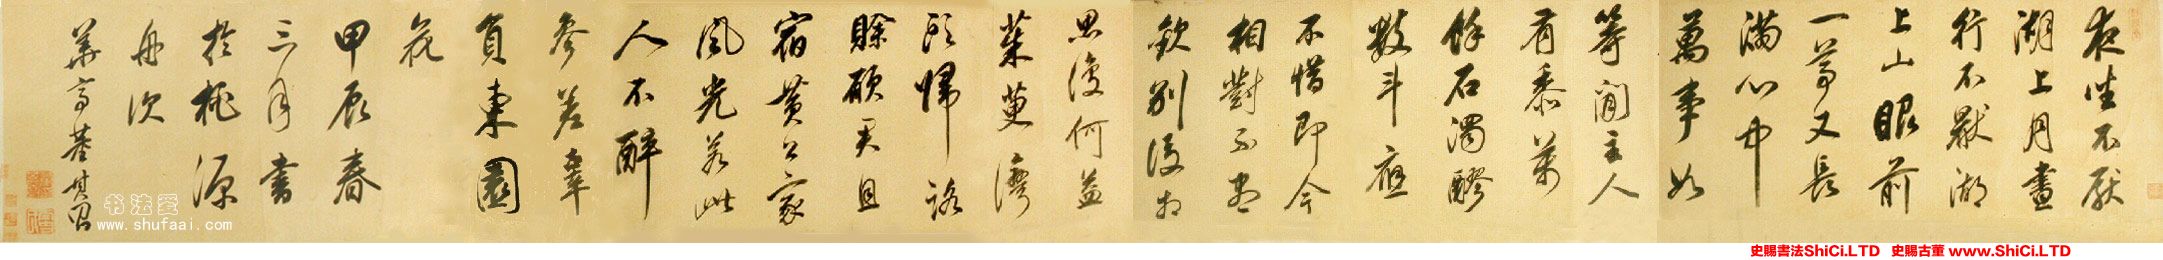 夜坐不厭
湖上月晝
行不厭湖
上山眼前
一尊又長
滿心中
萬事如
等閒主人
有黍萬
餘石濁醪
數斗應
不惜即今
相對不盡
歡別後相
思復何益
茱萸灣
頭歸路
賒願君且
宿黃公家
風光若此
人不醉
參差辜
負東園
花
甲辰春
三月書
於桃源
舟次
華亭董其昌
书法爱
www.shufaai.com
史賜書法ShiCi.LTD 史賜古董 www.ShiCi.LTD